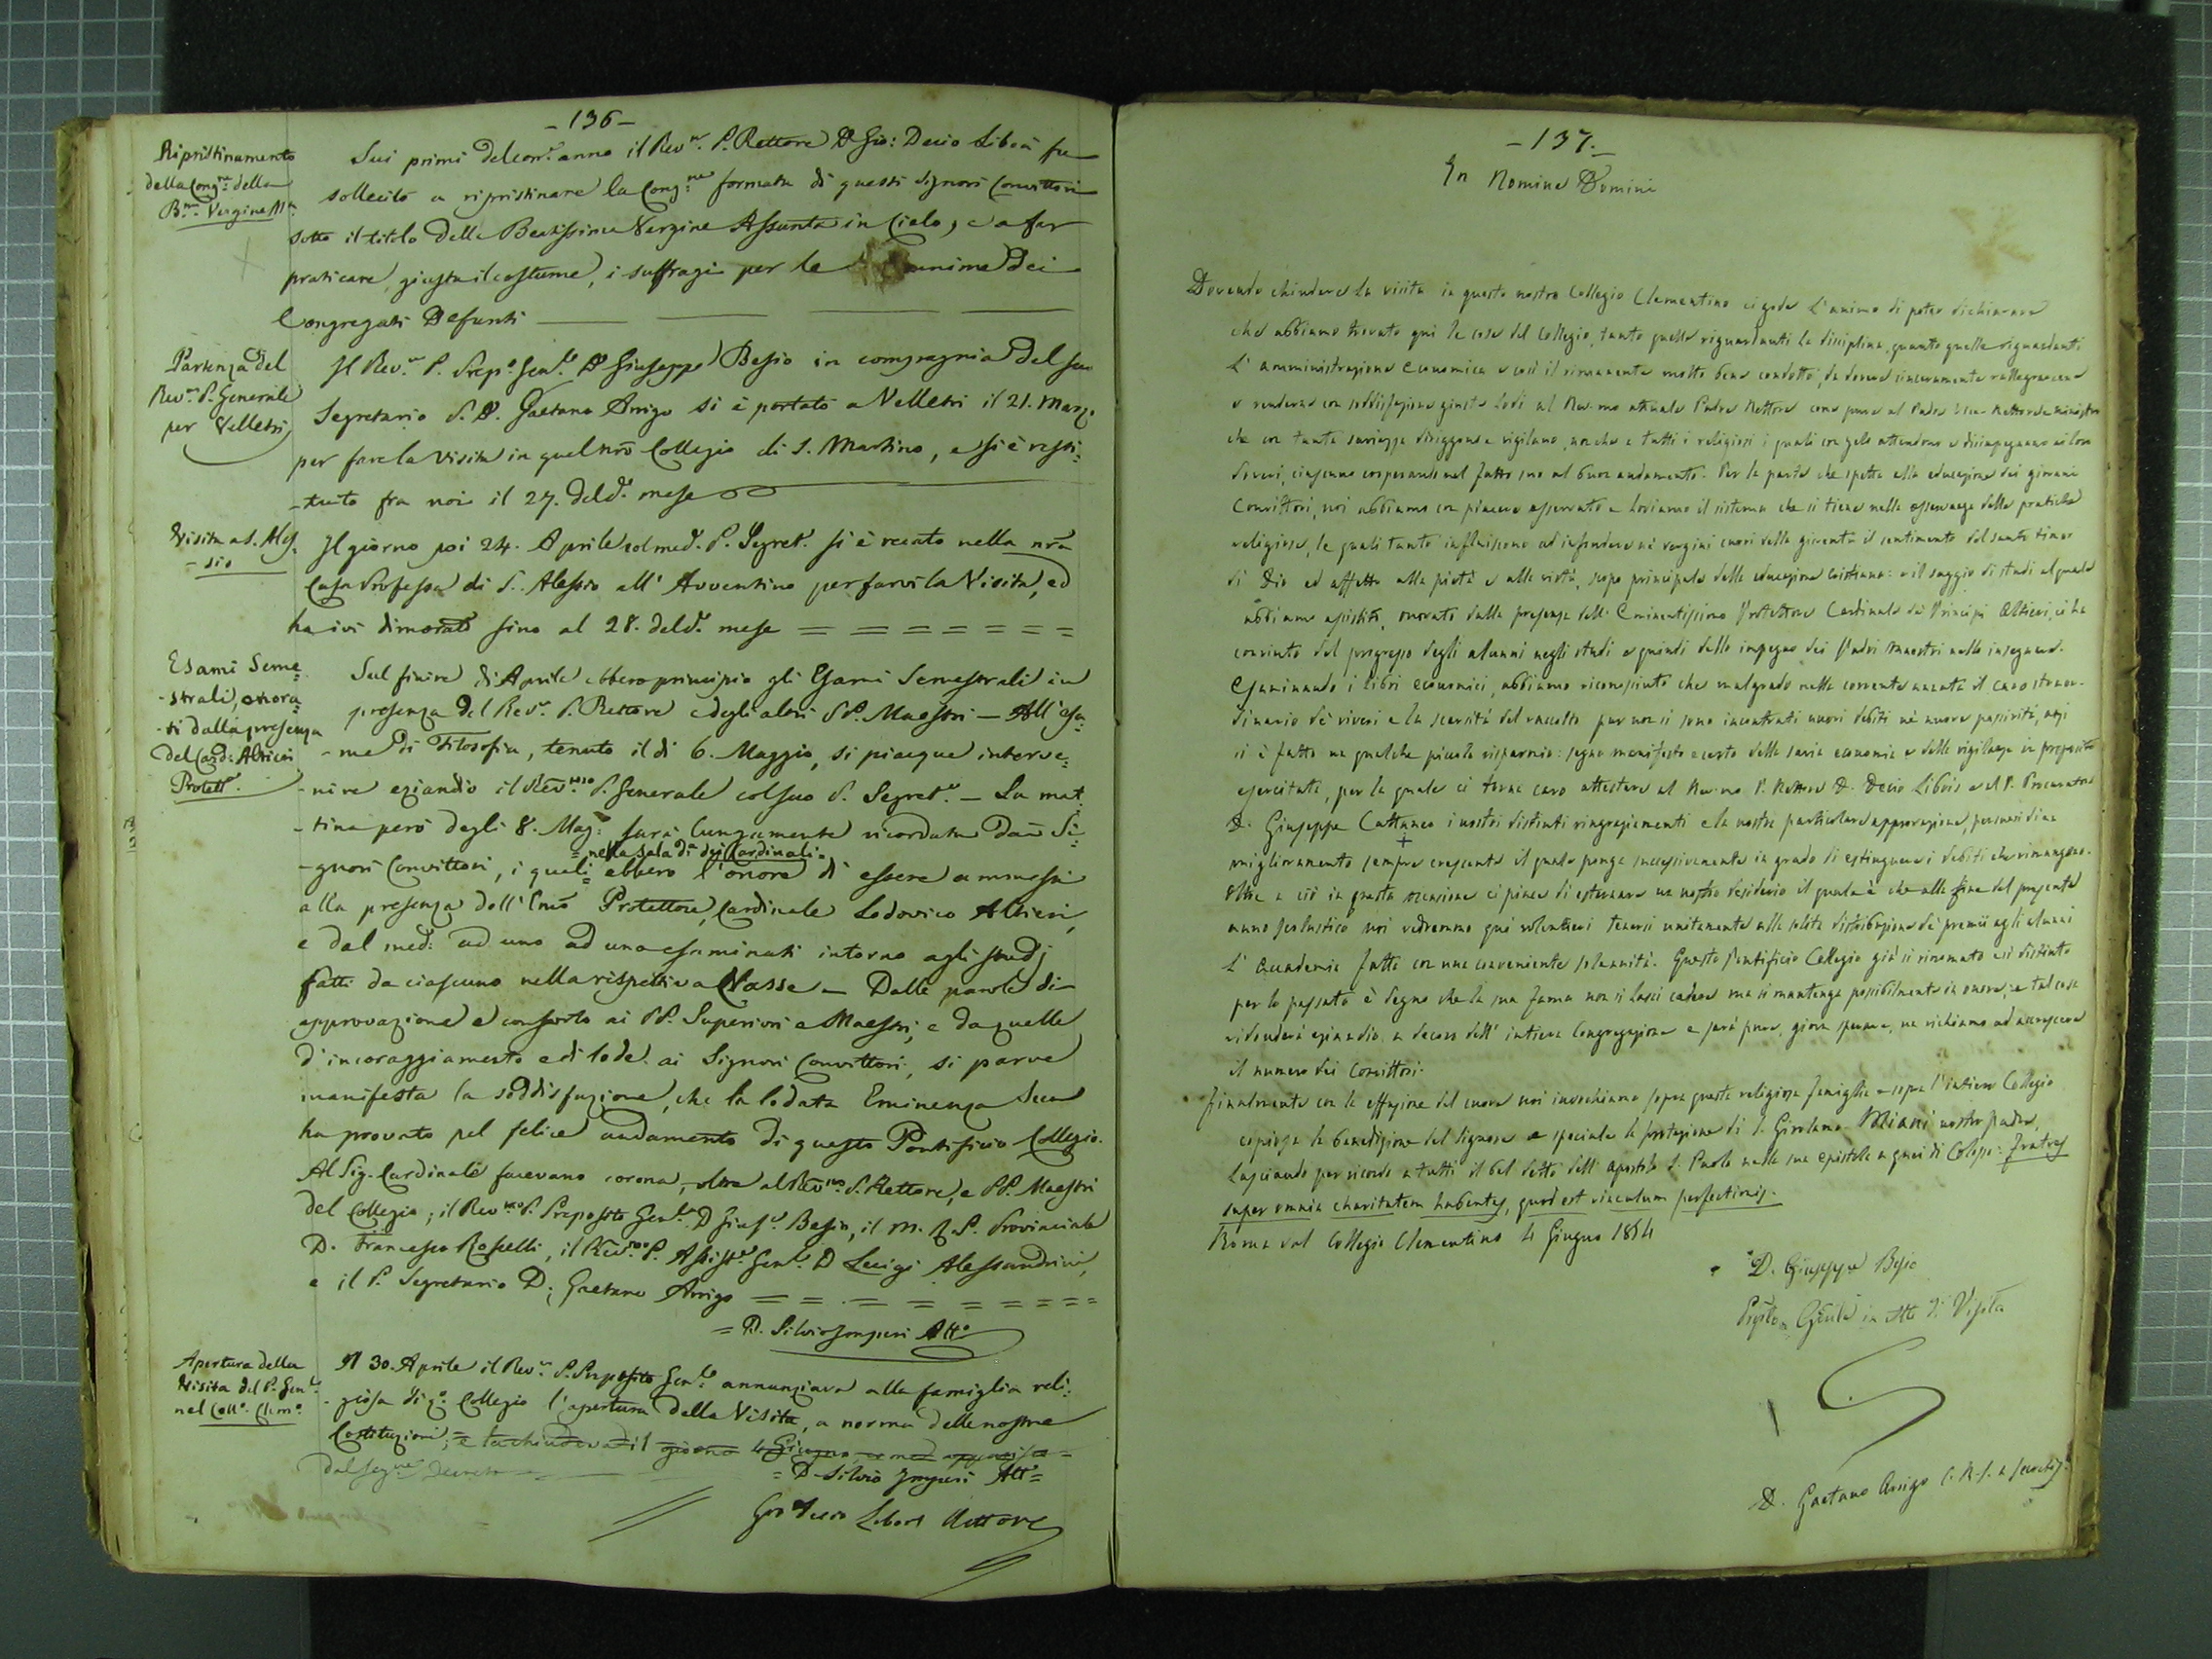 -136-
Ripristinamento
della Cong.ne della
B.ma Vergine M.a
Sui primi del corr. anno il Rev.mo P. Rettore D. Gio: Decio Libois fu
sollecito a ripristinare la Cong.ne formata di questi Signori Convittori
sotto il titolo della Beatissima Vergine Assunta in Cielo, e a far
praticare, giusta il costume, i suffragi per le anime dei
Congregati Defunti
Partenza del
Rev.mo P. Generale
per Velletri
Il Rev.mo P. Prep.o Gen.le D. Giuseppe Besio in compagnia del suo
Segretario P. D. Gaetano Arrigo si è portato a Velletri il 21. Marzo
per fare la visita in quel nrõ Collegio di S. Martino, e si è resti-
-tuito fra noi il 27. del d.o mese
Visita a S. Ales-
-sio
Il giorno poi 24. Aprile col med. P. Segret. si è recato nella nrã
Casa Professa di S. Alessio all' Aventino per farvi la Visita, ed
ha ivi dimorato sino al 28. del d.o mese = = = = = = =
Esami Seme-
-strali, onora-
-ti dalla presenza
del Card: Altieri
Protett.
Sul finire di Aprile ebbero principio gli Esami Semestrali in
presenza del Rev. P. Rettore e degli altri PP. Maestri — All' esa-
-me di Filosofia, tenuto il dì 6. Maggio, si piacque interve-
-nire eziandio il Rev.mo P. Generale col suo P. Segret.o — La mat-
-tina però degli 8. Mag: sarà lungamente ricordata dai Si-
= nella sala d.a dei Cardinali =
-gnori Convittori, i quali = ebbero l'onore di essere ammessi
alla presenza dell' Emõ Protettore, Cardinale Lodovico Altieri,
e dal med: ad uno ad uno esaminati intorno agli studj
fatti da ciascuno nella rispettiva Classe — Dalle parole di
approvazione e conforto ai PP. Superiori e Maestri, e da quelle
d'incoraggiamento e di lode ai Signori Convittori, si parve
manifesta la soddisfazione, che la lodata Eminenza Sua
ha provato pel felice andamento di questo Pontificio Collegio.
Al Sig. Cardinale facevano corona, oltre al Rev.mo P. Rettore, e PP. Maestri
del Collegio; il Rev.mo P. Preposito Gen.le D. Gius.e Besio, il M. R. P. Provinciale
D. Francesco Rosselli, il Rev.mo P. Assist.e Gen.le D. Luigi Alessandrini,
e il P. Segretario D. Gaetano Arrigo = = = = = = = = =
= D. Silvio Imperi Att.o
Apertura della
Visita del P. Gen.le
nel Coll.o Clem.o
Il 30. Aprile il Rev.mo P. Preposito Gen.le annunziava alla famiglia reli-
-giosa di q.o Collegio l'apertura della Visita, a norma delle nostre
Costituzioni; = e la chiudeva il giorno 4 Giugno, come
dal seg.te Decreto
= D. Silvio Imperi Att.o =
Gio Decio Libois Rettore
-137.-
In Nomine Domini
Dovendo chiudere la visita in questo nostro Collegio Clementino ci gode l'animo di poter dichiarare
che abbiamo trovato qui le cose del Collegio, tanto quelle riguardanti la disciplina, quanto quelle riguardanti
l' amministrazione economica e così il rimanente molto bene condotto, da dover sinceramente rallegrarcene
e renderne con soddisfazione giuste lodi al Rev.mo attuale Padre Rettore come pure al Padre Vice-Rettore e ministro
che con tanta saviezza dirigono e vigilano, non che a tutti i religiosi i quali con zelo attendono e disimpegnano ai loro
doveri, ciascuno cooperando nel fatto suo al buon andamento. Per la parte che spetta alla educazione dei giovani
Convittori, noi abbiamo con piacere osservato e lodiamo il sistema che si tiene nella osservanza delle pratiche
religiose, le quali tanto influiscono ad infondere nè vergini cuori della gioventù il sentimento del santo timor
di Dio ed affetto alla pietà e alla virtù, scopo principale della educazione cristiana: e il saggio di studi al quale
abbiamo assistito, onorato dalla presenza dell' Eminentissimo Protettore Cardinale dei Principi Altieri, ci ha
convinto del progresso degli alunni negli studi e quindi dello impegno dei Padri Maestri nello insegnare.
Esaminando i libri economici, abbiamo riconosciuto che malgrado nella corrente annata il caro straor-
dinario dè viveri e la scarsità del raccolto pur non si sono incontrati nuovi debiti nè nuove passività, anzi
si è fatto un qualche piccolo risparmio: segno manifesto e certo della savia economia e della vigilanza in proposito
esercitate, per la quale ci torna caro attestare al Rev.mo P. Rettore D. Decio Libois e al P. Procuratore
D. Giuseppe Cattaneo i nostri distinti ringraziamenti e la nostra particolare approvazione, persuasi di un
miglioramento sempre crescente il quale ponga successivamente in grado di estinguere i debiti che rimangono.
Oltre a ciò in questa occasione ci piace di esternare un nostro desiderio il quale è che alla fine del presente
anno scolastico noi vedremmo qui volentieri tenersi unitamente alla solita distribuzione dè premii agli alunni
l' Accademia fatta con una conveniente solennità. Questo Pontificio Collegio già sì rinomato e sì distinto
per lo passato è degno che la sua fama non si lasci cadere ma si mantenga possibilmente in onore; e tal cosa
ridonderà eziandio a decoro dell' intiera Congregazione e sarà pure, giova sperare, un richiamo ad accrescere
il numero dei Convittori.
Finalmente con la effusione del cuore noi invochiamo sopra questa religiosa famiglia e sopra l'intiero Collegio
copiosa la benedizione del Signore e speciale la protezione di S. Girolamo Miani nostro padre,
lasciando per ricordo a tutti il bel detto dell' Apostolo S. Paolo nella sua epistola a quei di Colosso: Fratres
super omnia charitatem habentes, quod est vinculum perfectionis.
Roma dal Collegio Clementino 4 Giugno 1854
D. Giuseppe Besio
Prepto Genle in atto di Visita
D. Gaetano Arrigo C.R.S. a Secretis